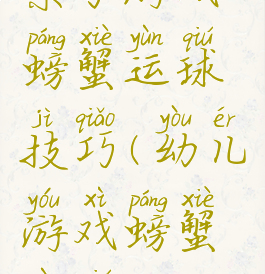 páng xiè yùn qiú
螃蟹运球
jì qiǎo yòu ér
技巧(幼儿
yóu xì páng xiè
游戏螃蟹